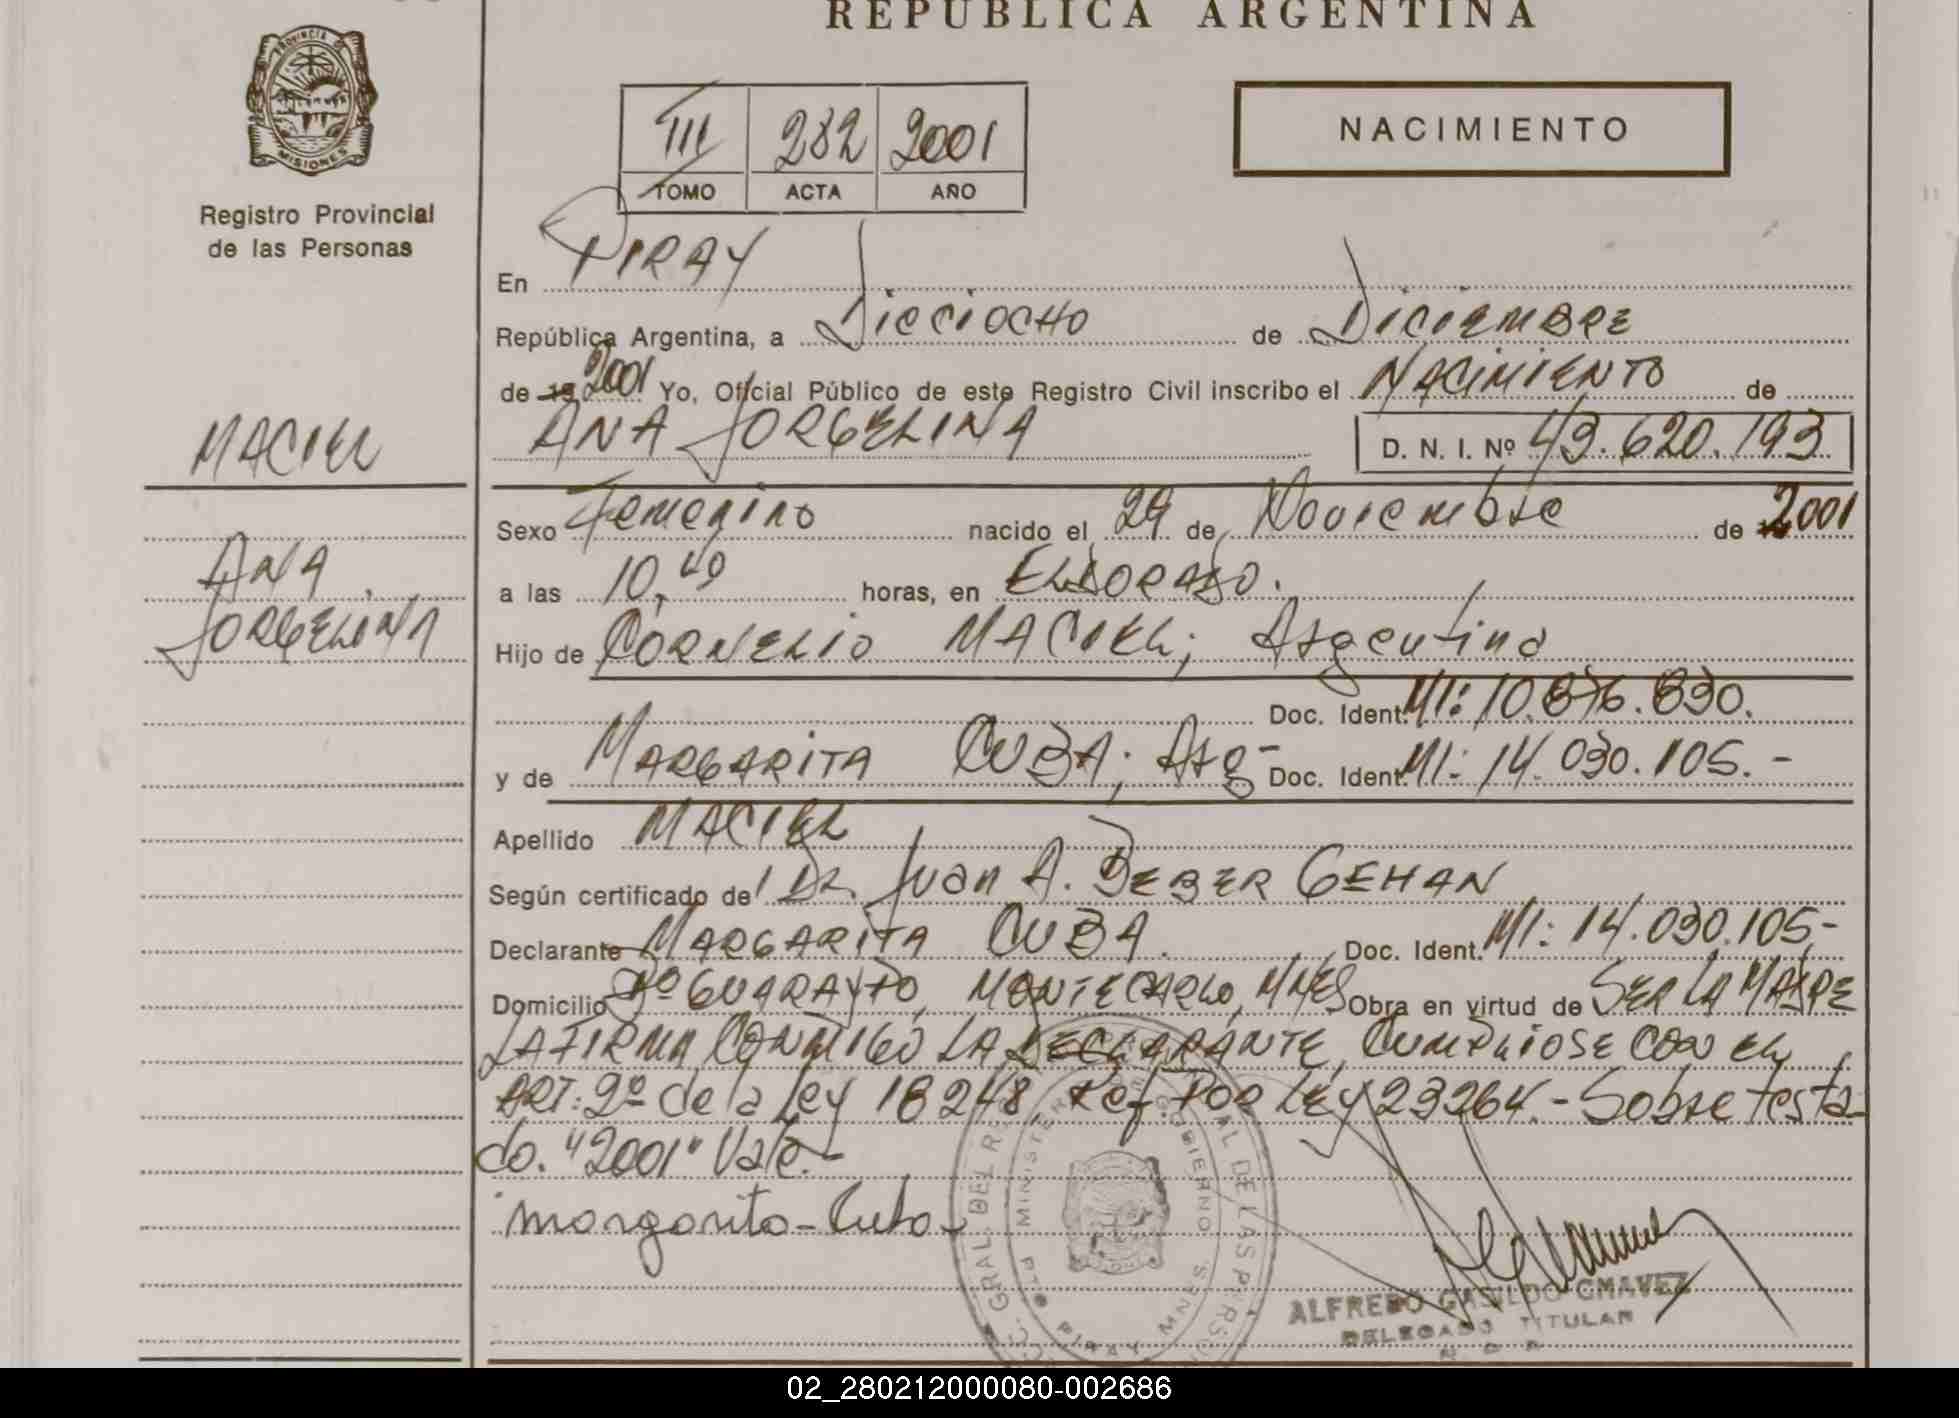 REPUBLICA ARGENTINA
PROVINCIA DE
MISIONES
Registro Provincial
de las Personas
III 282 2001
TOMO ACTA AÑO
NACIMIENTO
En PIRAY
República Argentina, a Diecciocho de Diciembre
de 19 2001 Yo, Oficial Público de este Registro Civil inscribo el NACIMIENTO de
MACIEL
ANA JORGELINA D. N. I. Nº 43.620.193
Sexo Femenino nacido el 29 de Noviembre de 2001
ANA
JORGELINA
a las 10,40 horas, en ELDORADO.
Hijo de CORNELIO MACIEL; Argentino
Doc. Ident. MI: 10.876.830.
y de MARGARITA CUBA; Arg- Doc. Ident. MI: 14.030.105.-
Apellido MACIEL
Según certificado de DR. Juan A. BEBER GEHAN
Declarante MARGARITA CUBA. Doc. Ident. MI: 14.030.105.-
Domicilio Bº GUARAYPO, MONTECARLO, MNES Obra en virtud de SER LA MADRE
LA FIRMA CONMIGO LA DECLARANTE, CUMPLIOSE CON EL
ART: 2º de la Ley 18248 Ref. POR LEY 23264.- Sobre testa-
do. "2001" Vale.-
margarita - Cuba -
GRAL. DEL DE LAS
MINISTERIO GOBIERNO
PTO PIRAY MNES.
ALFREDO GASILDO CHAVEZ
DELEGADO TITULAR
02_280212000080-002686